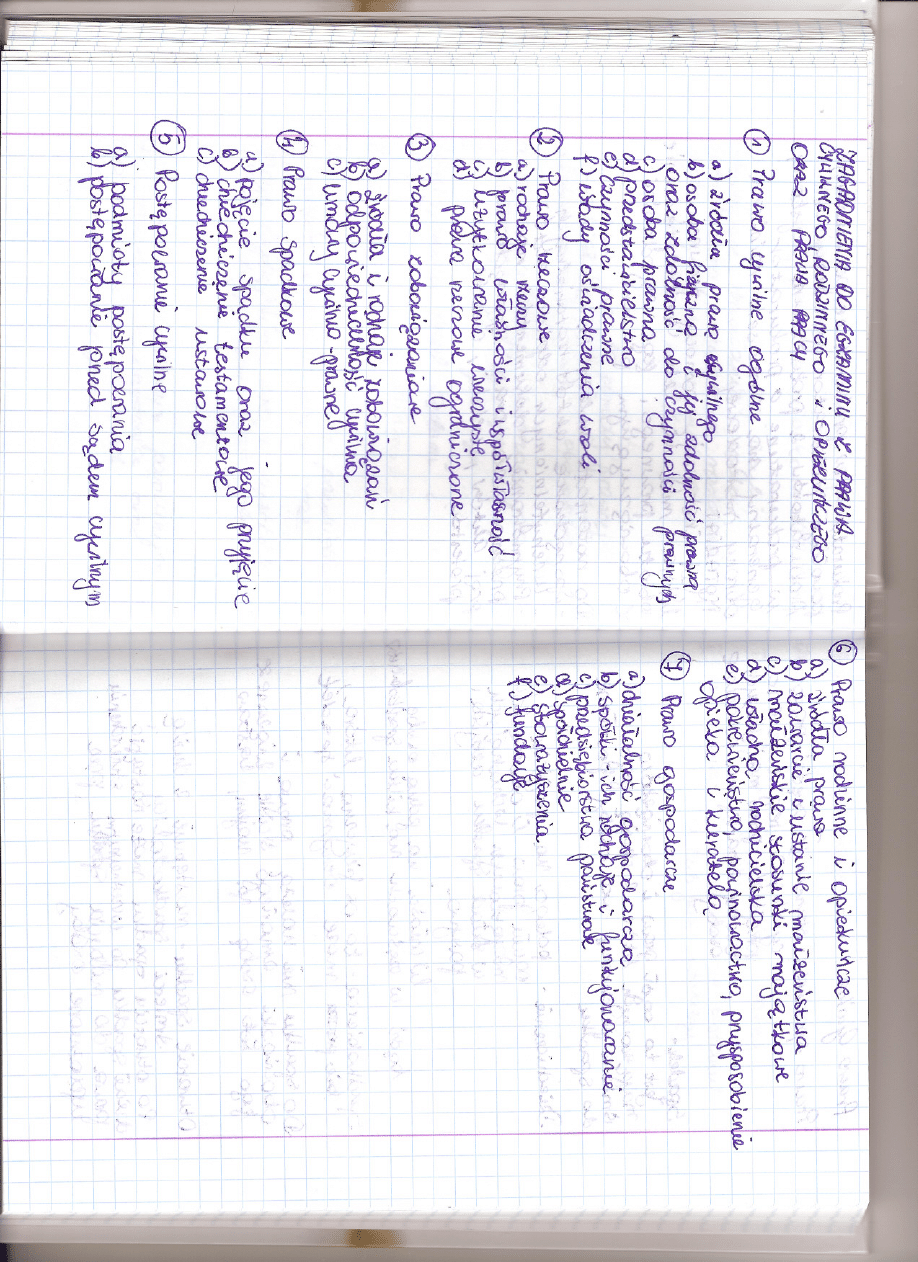 ZAGADNIENIA DO EGZAMINU Z PRAWA
CYWILNEGO, RODZINNEGO i OPIEKUŃCZEGO
ORAZ PRAWA PRACY
1 Prawo cywilne ogólne
a) źródła prawa cywilnego
b) osoba fizyczna i jej zdolność prawna
oraz zdolność do czynności prawnych
c) osoba prawna
d) przedstawicielstwo
e) czynności prawne
f) wady oświadczenia woli
2 Prawo rzeczowe
a) rodzaje rzeczy
b) prawo własności i współwłasność
c) użytkowanie wieczyste
d) prawa rzeczowe ograniczone
3 Prawo zobowiązaniowe
a) źródła i rodzaje zobowiązań
b) odpowiedzialność cywilna
c) umowy cywilno-prawne
4 Prawo spadkowe
a) pojęcie spadku oraz jego przyjęcie
b) dziedziczenie testamentowe
c) dziedziczenie ustawowe
5 Postępowanie cywilne
a) podmioty postępowania
b) postępowanie przed sądem cywilnym
6 Prawo rodzinne i opiekuńcze
a) źródła prawa
b) zawarcie i ustanie małżeństwa
c) małżeńskie stosunki majątkowe
d) władza rodzicielska
e) pokrewieństwo, powinowactwo, przysposobienie
opieka i kuratela
7 Prawo gospodarcze
a) działalność gospodarcza
b) spółki - ich rodzaje i funkcjonowanie
c) przedsiębiorstwa państwowe
d) spółdzielnie
e) stowarzyszenia
f) fundacje